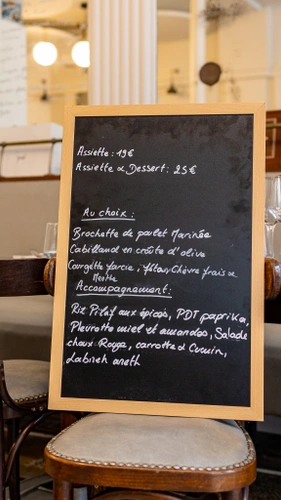 Assiette : 19€
Assiette & Dessert : 25€
Au choix :
Brochette de poulet Marinée
Cabillaud en croûte d'olive
Courgette farcie, fêta, Chèvre frais &
Menthe
Accompagnement :
Riz Pilaf aux épices, PDT paprika,
Pleurotte miel et amandes, Salade
choux Rouge, carrotte & Cumin,
Labneh aneth